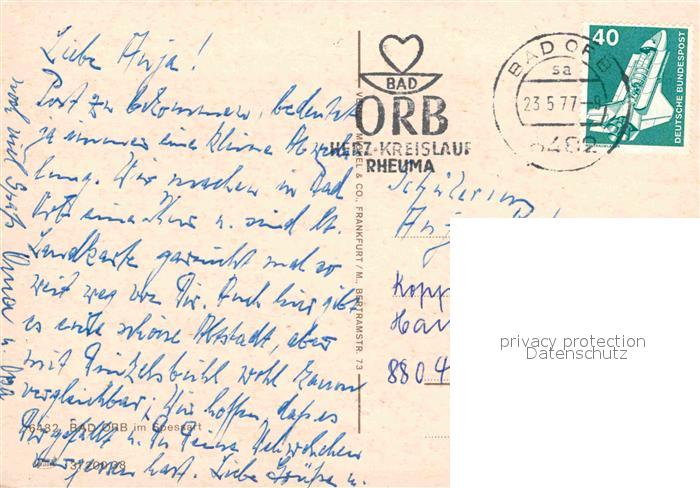 Liebe Anja!
Post zu bekommen, bedeutet
ja immer eine kleine Abwechs
lung. Wir machen in Bad
Orb eine Kur u. sind lt.
Landkarte garnicht mal so
weit weg von Dir. Auch hier gibt
es eine schöne Altstadt, aber
mit Dinkelsbühl wohl kaum
vergleichbar; Wir hoffen, daß es
Dir gefällt u. Du Deine
hast. Liebe Grüße u.
Oma u. Opa
BAD
ORB
HERZ·KREISLAUF
RHEUMA
BAD ORB
sa
23.5.77-9
6482
40
DEUTSCHE BUNDESPOST
& CO., FRANKFURT/M., BERTRAMSTR. 73
Schülerin
8804
6482 BAD ORB im Spessart
privacy protection
Datenschutz